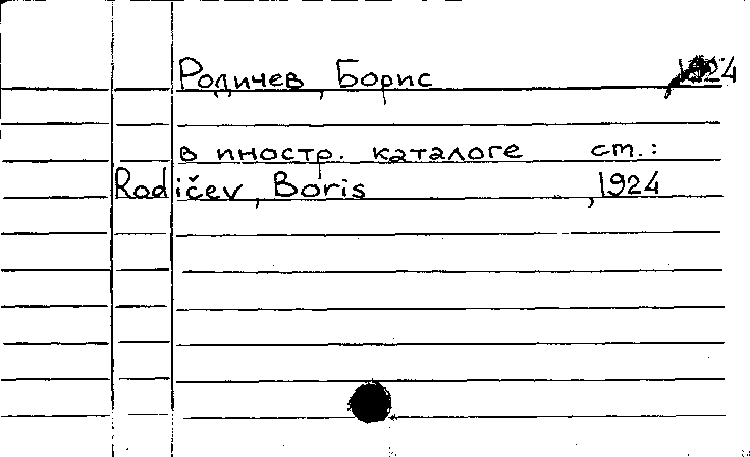 Родичев, Борис
в иностр. каталоге ст.:
Rodičev, Boris ,1924